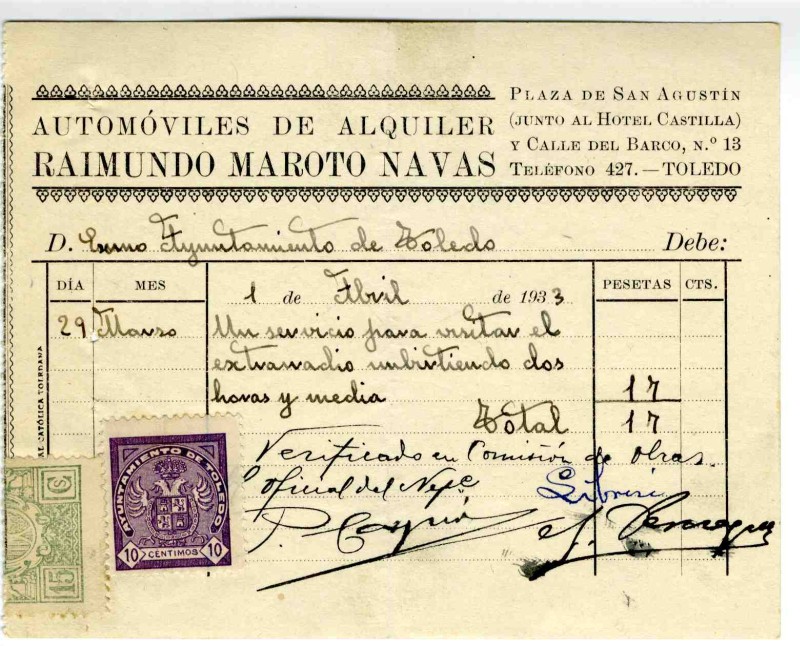 AUTOMÓVILES DE ALQUILER
RAIMUNDO MAROTO NAVAS
PLAZA DE SAN AGUSTÍN
(JUNTO AL HOTEL CASTILLA)
Y CALLE DEL BARCO, N.º 13
TELÉFONO 427.—TOLEDO
D. Exmo Ayuntamiento de Toledo Debe:
DÍA MES 1 de Abril de 1933 PESETAS CTS.
29 Marzo Un servicio para visitar el
extrarradio imbirtiendo dos
horas y media 17
Total 17
CATÓLICA TOLEDANA
Verificado en Comisión de obras.
Oficial del
AYUNTAMIENTO DE TOLEDO
10 CÉNTIMOS 10
15 Cs